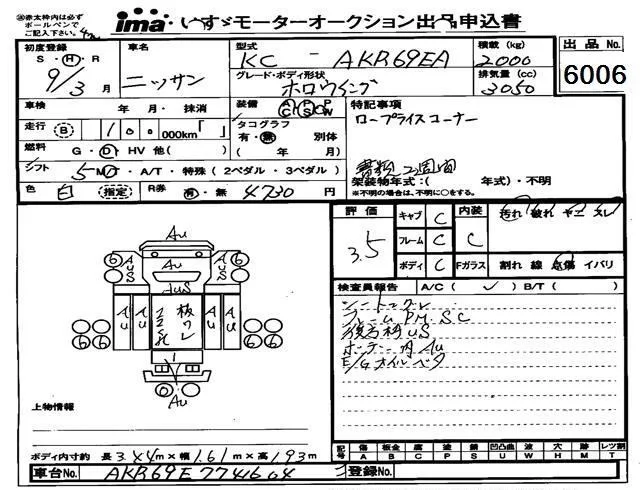 ※赤太枠内は必ず ボールペンで ご記入下さい。 ima いすゞモーターオークション出品申込書
初度登録 車名 型式 積載(kg) 出品No.
S・H・R 9/3月 ニッサン KC - AKR69EA 2000 6006
グレード・ボディ形状 ホロウイング 排気量(cc) 3050
車検 年 月・抹消 装備 AC PS PW 特記事項
走行 B 100,000km「 」 タコグラフ 有・無 別体 ロープライスコーナー
燃料 G・D・HV 他( ) ( 年 月) 書類二週間
シフト 5 MT・A/T・特殊(2ペダル・3ペダル) 架装物年式:( 年式)・不明
※不明の場合は、不明に○をする。
色 白 (指定) R券 有・無 4730円
評価 3.5 キャブ C 内装 C 汚れ 破れ ヤニ スレ
フレーム C
ボディ C Fガラス 割れ 線 点傷 イバリ
検査員報告 A/C( ✓ ) B/T( )
フレームPM.SC
US
ボデー内AU
E/Gオイルベタ
AU
AU
AUS AUS AUS
AU AU 板ワレ AU AU
6 6 6 6
AU
上物情報
ボディ内寸約 長3.44m×幅1.61m×高1.93m
記号 傷 A 板金 B 腐 C 塗 P 錆 S 凹凸曲 U 波 W 穴 H 跡 M レツ割 T
車台No. AKR69E7741604 登録No.